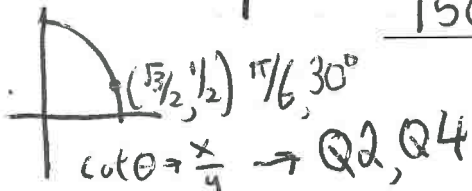 150
(√3/2, 1/2) π/6, 30°
cot θ → x/y → Q2, Q4